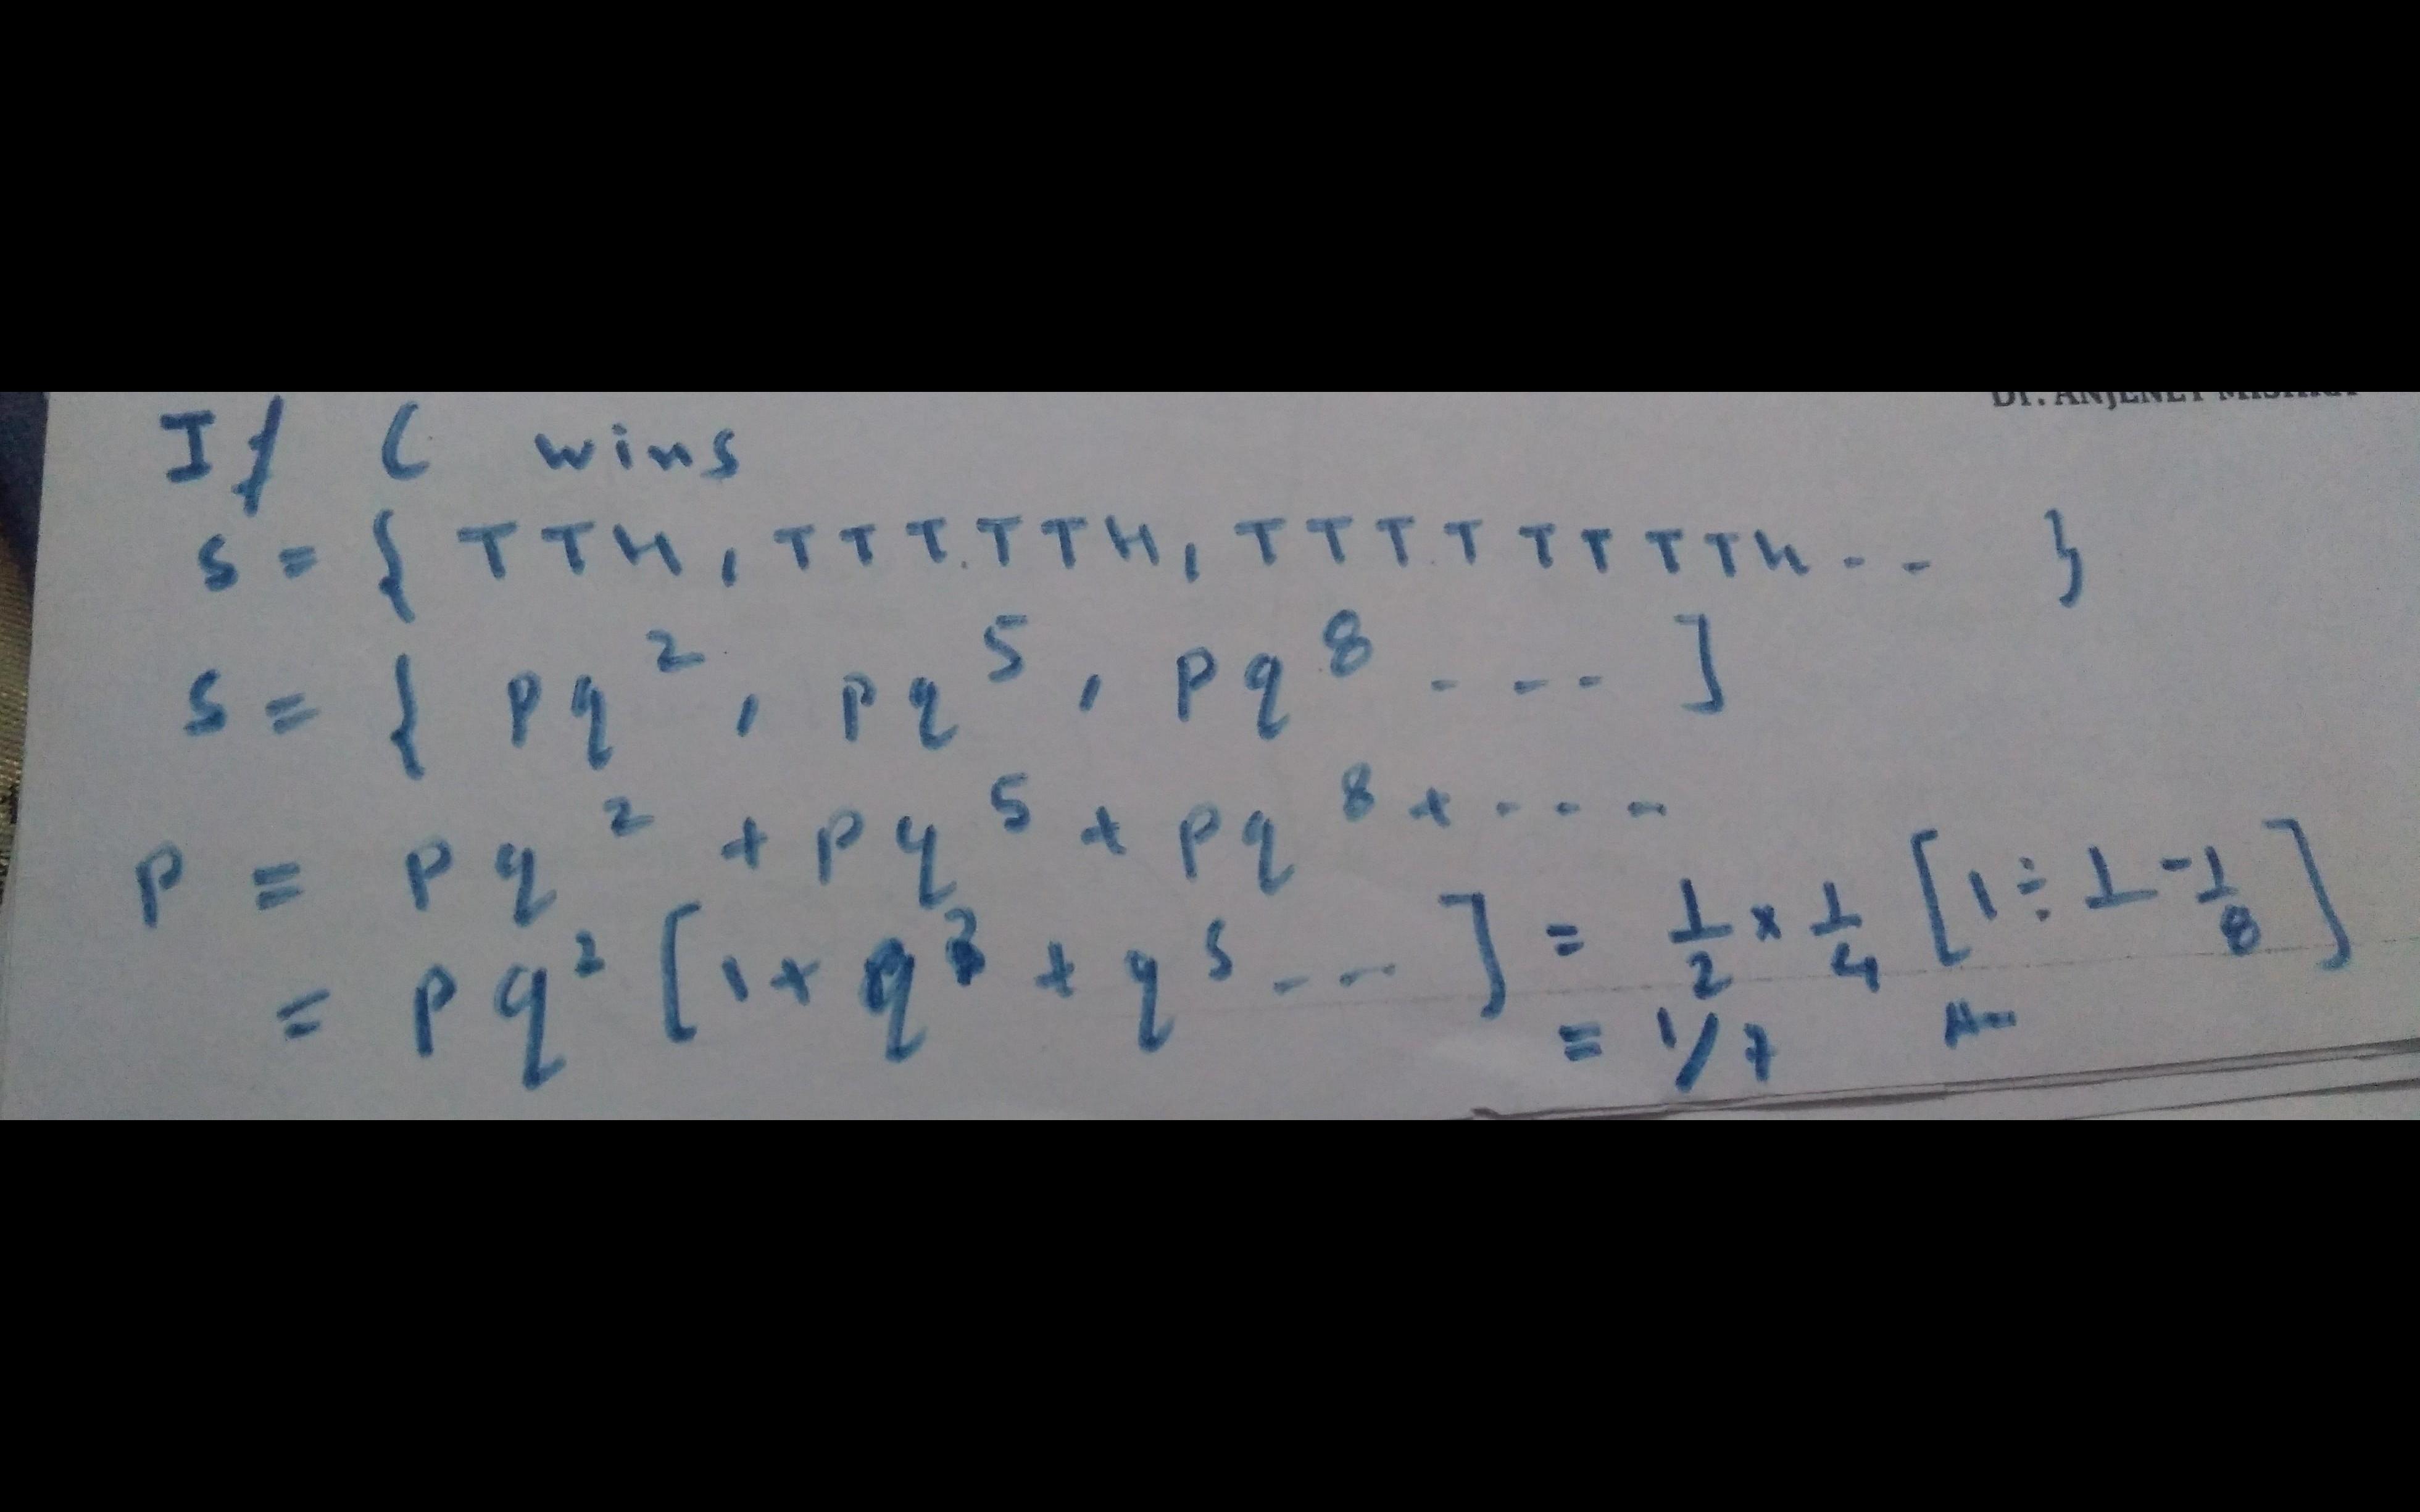 Dr. ANJENEY MISHRA
If C wins
S = { TTH, TTTTTH, TTTTTTTTH .. }
S = { pq², pq⁵, pq⁸ ---- ]
P = pq² + pq⁵ + pq⁸ + ---
= pq² [1 + q³ + q⁵ --- ] = 1/2 × 1/4 [1 ÷ 1 - 1/8]
= 1/7